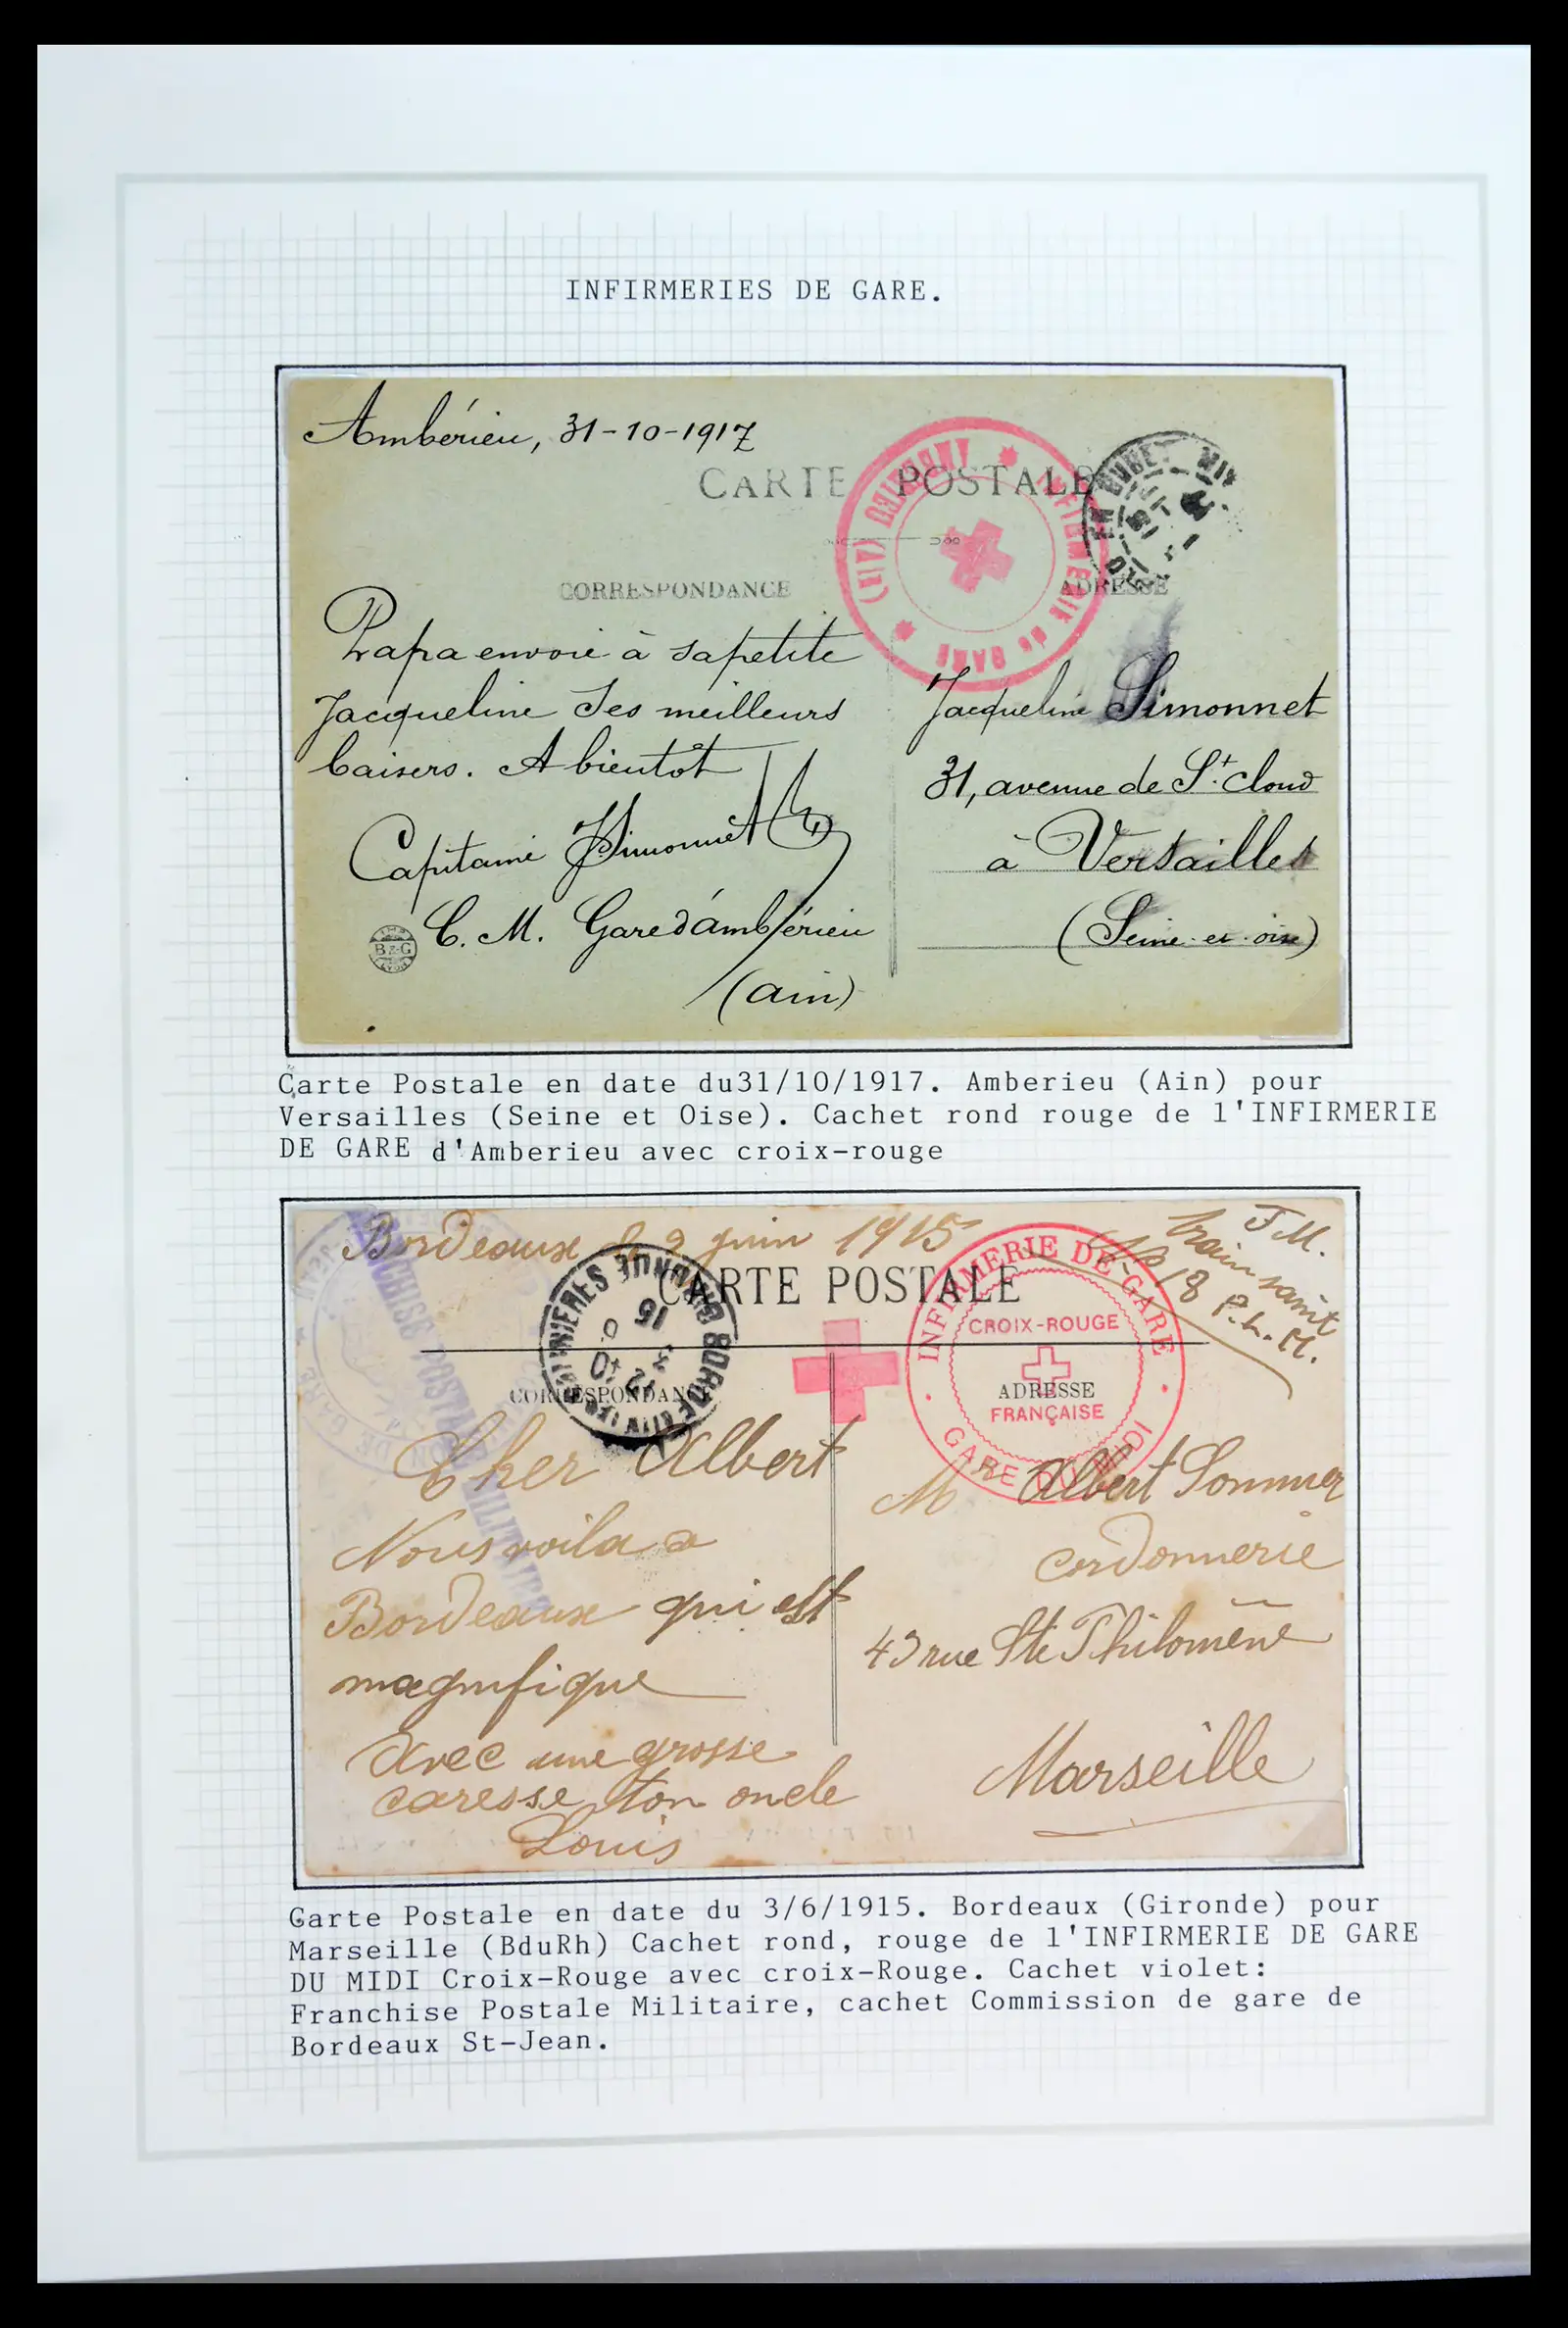 INFIRMERIES DE GARE.
Ambérieu, 31-10-1917
CARTE POSTALE
INFIRMERIE de GARE
(AIN)
CORRESPONDANCE
ADRESSE
Papa envoie à sa petite
Jacqueline ses meilleurs
baisers. A bientôt
Capitaine Simonnet
C. M. Gare d'ambérieu
(ain)
B & G
Jacqueline Simonnet
31, avenue de St. Cloud
à Versailles
(Seine et oise)
Carte Postale en date du31/10/1917. Amberieu (Ain) pour
Versailles (Seine et Oise). Cachet rond rouge de l'INFIRMERIE
DE GARE d'Amberieu avec croix-rouge
Bordeaux le 2 juin 1915
F.M.
train sanit
P.L.M.
CARTE POSTALE
BORDEAUX GIRONDE
15
INFIRMERIE DE GARE
CROIX-ROUGE
FRANÇAISE
GARE DU MIDI
FRANCHISE POSTALE MILITAIRE
CORRESPONDANCE
ADRESSE
Cher Albert
Nous voila a
Bordeaux qui est
magnifique
Avec une grosse
caresse ton oncle
Louis
M Albert Sommer
Cordonnerie
43 rue Ste Philomène
Marseille
Carte Postale en date du 3/6/1915. Bordeaux (Gironde) pour
Marseille (BduRh) Cachet rond, rouge de l'INFIRMERIE DE GARE
DU MIDI Croix-Rouge avec croix-Rouge. Cachet violet:
Franchise Postale Militaire, cachet Commission de gare de
Bordeaux St-Jean.